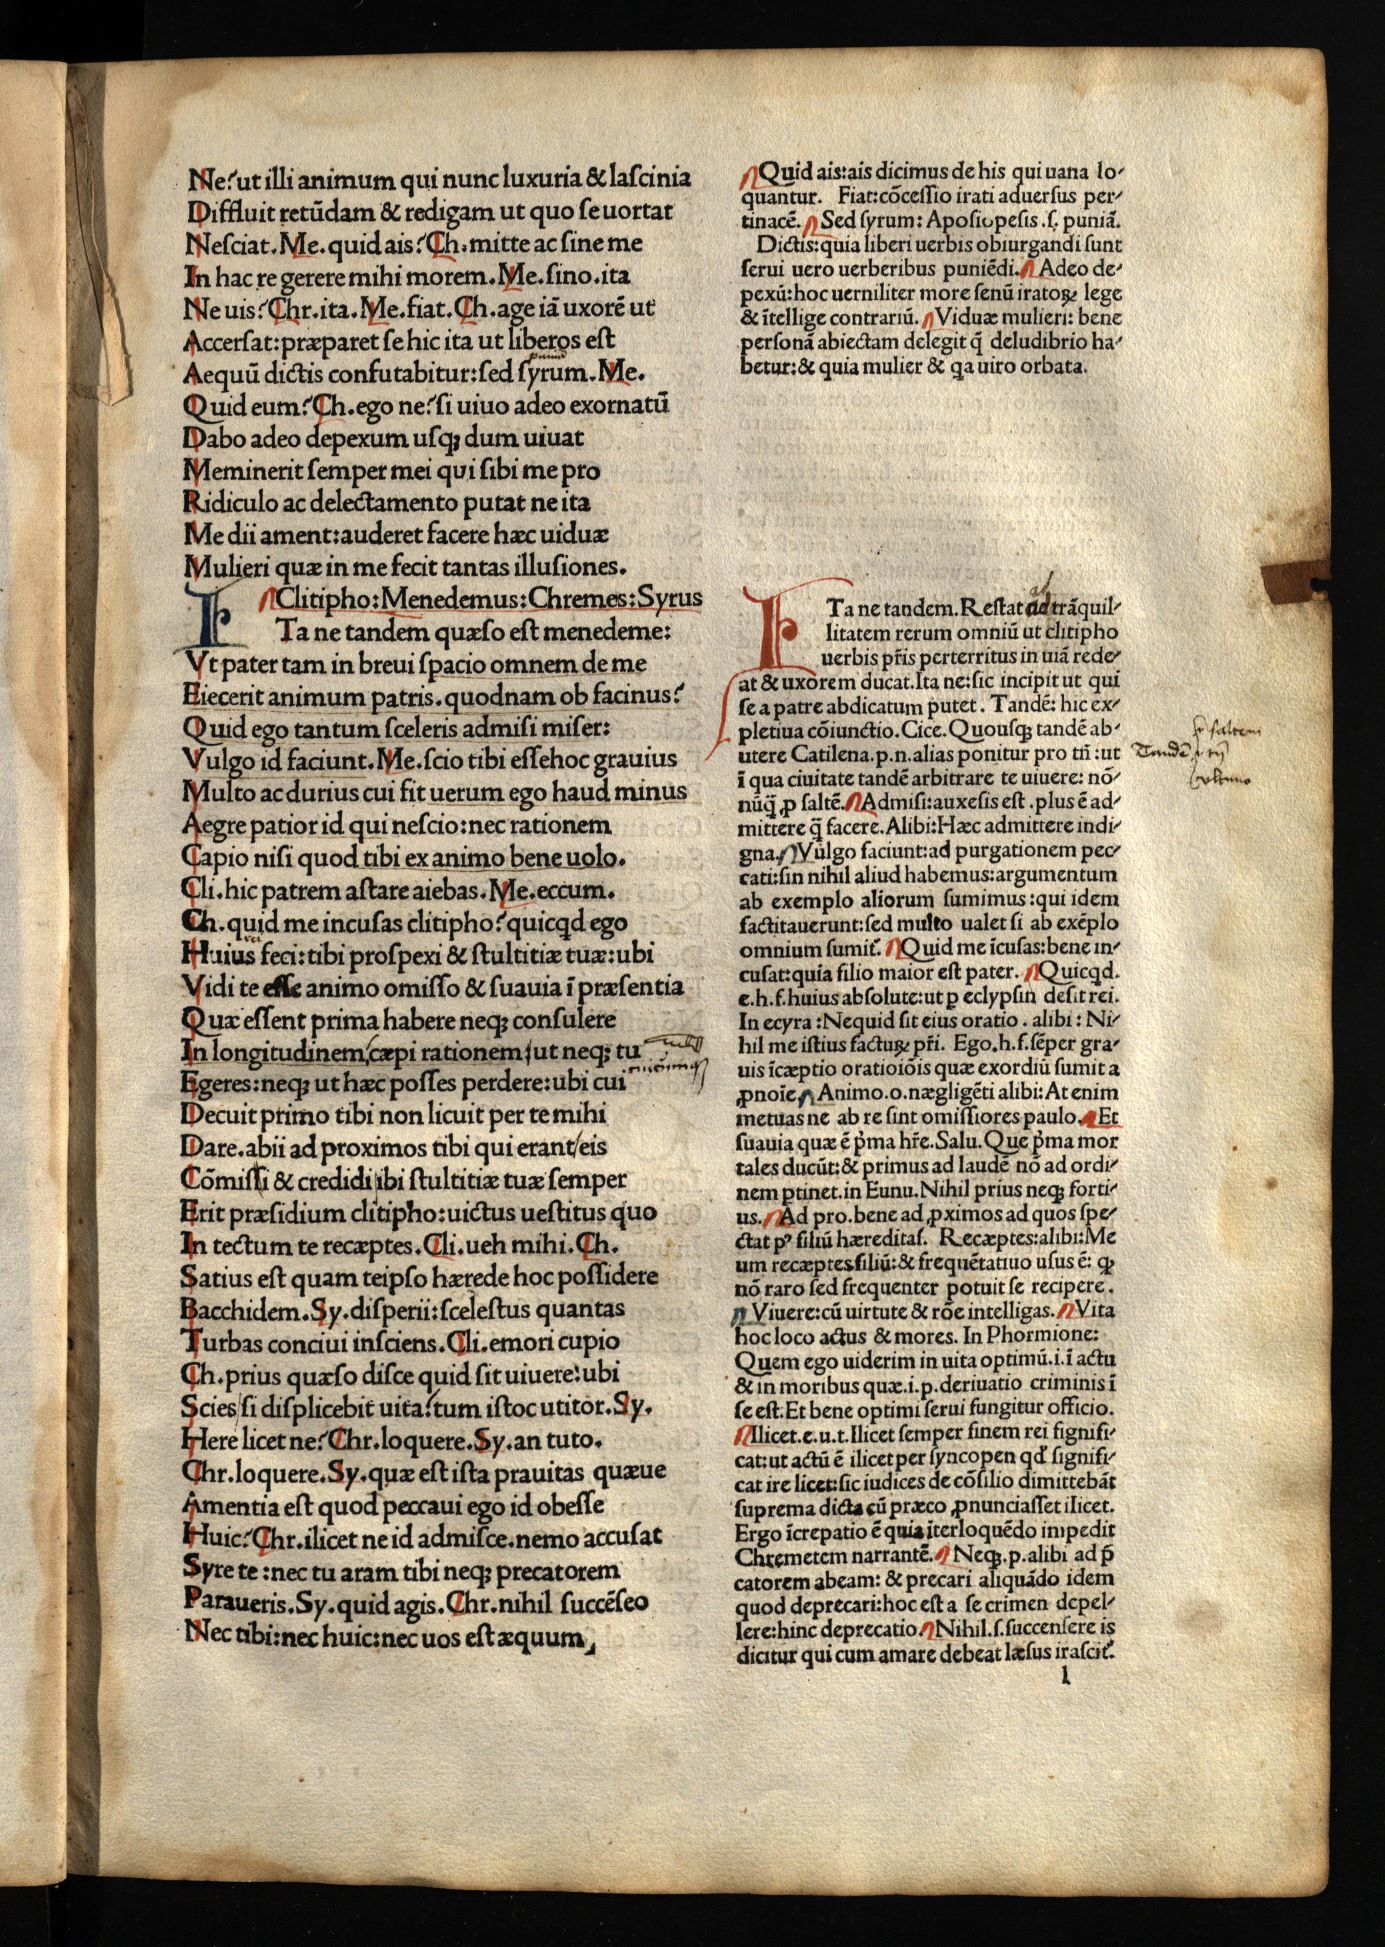 Ne? ut illi animum qui nunc luxuria & lascinia
Diffluit retūdam & redigam ut quo se uortat
Nesciat. Me. quid ais? Ch. mitte ac sine me
In hac re gerere mihi morem. Me. sino. ita
Ne uis? Chr. ita. Me. fiat. Ch. age iā uxorē ut
Accersat: præparet se hic ita ut liberos est
Aequū dictis confutabitur: sed syrum. Me.
Quid eum? Ch. ego ne? si uiuo adeo exornatū
Dabo adeo depexum usqꝫ dum uiuat
Meminerit semper mei qui sibi me pro
Ridiculo ac delectamento putat ne ita
Me dii ament: auderet facere hæc uiduæ
Mulieri quæ in me fecit tantas illusiones.
Clitipho: Menedemus: Chremes: Syrus
ITa ne tandem quæso est menedeme:
Vt pater tam in breui spacio omnem de me
Eiecerit animum patris. quodnam ob facinus?
Quid ego tantum sceleris admisi miser:
Vulgo id faciunt. Me. scio tibi essehoc grauius
Multo ac durius cui fit uerum ego haud minus
Aegre patior id qui nescio: nec rationem
Capio nisi quod tibi ex animo bene uolo.
Cli. hic patrem astare aiebas. Me. eccum.
Ch. quid me incusas clitipho? quicqd ego
Huius feci: tibi prospexi & stultitiæ tuæ: ubi
Vidi te esse animo omisso & suauia ī præsentia
Quæ essent prima habere neqꝫ consulere
In longitudinem cæpi rationem ut neqꝫ tu
Egeres: neqꝫ ut hæc posses perdere: ubi cui
Decuit primo tibi non licuit per te mihi
Dare. abii ad proximos tibi qui erant eis
Cōmissi & credidi ibi stultitiæ tuæ semper
Erit præsidium clitipho: uictus uestitus quo
In tectum te recæptes. Cli. ueh mihi. Ch.
Satius est quam teipso hærede hoc possidere
Bacchidem. Sy. disperii: scelestus quantas
Turbas conciui insciens. Cli. emori cupio
Ch. prius quæso disce quid sit uiuere: ubi
Scies si displicebit uita? tum istoc utitor. Sy.
Here licet ne? Chr. loquere. Sy. an tuto.
Chr. loquere. Sy. quæ est ista prauitas quæue
Amentia est quod peccaui ego id obesse
Huic? Chr. ilicet ne id admisce. nemo accusat
Syre te: nec tu aram tibi neqꝫ precatorem
Paraueris. Sy. quid agis. Chr. nihil succēseo
Nec tibi: nec huic: nec uos est æquum
Quid ais: ais dicimus de his qui uana lo-
quantur. Fiat: cōcessio irati aduersus per-
tinacē. Sed syrum: Aposiopesis .s. puniā.
Dictis: quia liberi uerbis obiurgandi sunt
serui uero uerberibus puniēdi. Adeo de-
pexū: hoc uerniliter more senū iratoꝝ lege
& ītellige contrariū. Viduæ mulieri: bene
personā abiectam delegit q̄ deludibrio ha-
betur: & quia mulier & qa uiro orbata.
ITa ne tandem. Restat ad trāquil-
litatem rerum omniū ut clitipho
uerbis pr̄is perterritus in uiā rede-
at & uxorem ducat. Ita ne: sic incipit ut qui
se a patre abdicatum putet. Tandē: hic ex-
pletiua cōiunctio. Cice. Quousqꝫ tandē ab-
utere Catilena. p. n. alias ponitur pro tn̄: ut
ī qua ciuitate tandē arbitrare te uiuere: nō-
nūq̄ ꝓ saltē. Admisi: auxesis est. plus ē ad-
mittere q̄ facere. Alibi: Hæc admittere indi-
gna. Vulgo faciunt: ad purgationem pec-
cati: sin nihil aliud habemus: argumentum
ab exemplo aliorum sumimus: qui idem
factitauerunt: sed multo ualet si ab exēplo
omnium sumit᷑. Quid me īcusas: bene in-
cusat: quia filio maior est pater. Quicqd.
e. h. f. huius absolute: ut p eclypsin desit rei.
In ecyra: Nequid sit eius oratio. alibi: Ni-
hil me istius factuꝝ pr̄i. Ego. h. f. sēper gra-
uis īcæptio oratioiōis quæ exordiū sumit a
ꝓnoīe. Animo. o. nægligēti alibi: At enim
metuas ne ab re sint omissiores paulo. Et
suauia quæ ē pͥma hr̄e. Salu. Que pͥma mor
tales ducūt: & primus ad laudē nō ad ordi-
nem ptinet. in Eunu. Nihil prius neqꝫ forti-
us. Ad pro. bene ad ꝓximos ad quos spe-
ctat pꝰ filiū hæreditas. Recæptes: alibi: Me
um recæptes filiū: & frequētatiuo usus ē: qꝫ
nō raro sed frequenter potuit se recipere.
Viuere: cū uirtute & rōe intelligas. Vita
hoc loco actus & mores. In Phormione:
Quem ego uiderim in uita optimū. i. ī actu
& in moribus quæ. i. p. deriuatio criminis ī
se est. Et bene optimi serui fungitur officio.
Ilicet. e. u. t. Ilicet semper finem rei signifi-
cat: ut actū ē ilicet per syncopen qd' signifi-
cat ire licet: sic iudices de cōsilio dimittebāt
suprema dicta cū præco ꝓnunciasset ilicet.
Ergo īcrepatio ē quia īterloquēdo impedit
Chremetem narrantē. Neqꝫ. p. alibi ad p̄
catorem abeam: & precari aliquādo idem
quod deprecari: hoc est a se crimen depel-
lere: hinc deprecatio. Nihil. s. succensere is
dicitur qui cum amare debeat læsus irascit᷑.
l
Tandē